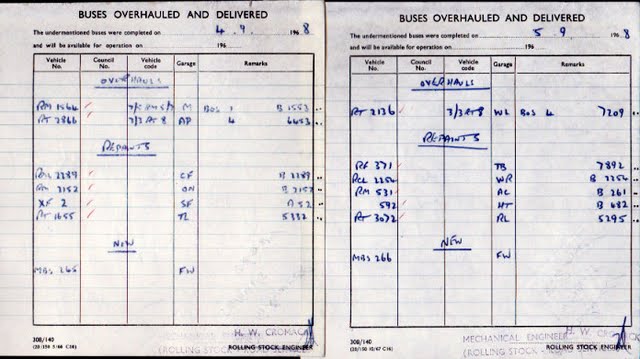 BUSES OVERHAULED AND DELIVERED
The undermentioned buses were completed on 4.9. 196 8
and will be available for operation on 196
Vehicle No. Council No. Vehicle code Garage Remarks
OVERHAULS
RM 1564 M BOS 1 B 1553
RT 2866 7/3 RT 8 AP 4 6453
REPAINTS
2289 CF B 2289
RM 2152 ON B 2152
XF 2 SF 52
RT 1655 TL 5332
NEW
MBS 265 FW
H. W. CROMACK
308/140
ROLLING STOCK ENGINEER
BUSES OVERHAULED AND DELIVERED
The undermentioned buses were completed on 5 9. 196 8
and will be available for operation on 196
Vehicle No. Council No. Vehicle code Garage Remarks
OVERHAULS
RT 2136 7/3 RT 8 WL BOS 4 7209
REPAINTS
RF 371 TB 7892
RCL 2254 WR B 2254
RM 531 AC B 261
592 HT B 682
RT 3072 RL 5295
NEW
MBS 266 FW
308/140
MECHANICAL ENGINEER
H. W. CROMACK
(ROLLING STOCK
ROLLING STOCK ENGINEER